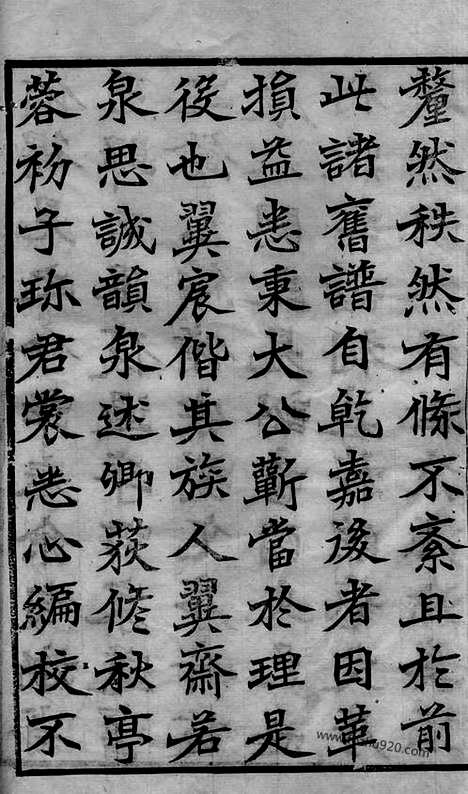 釐然秩然有條不紊且於前
此諸舊譜自乾嘉後者因革
損益悉秉大公蘄當於理是
役也翼宸偕其族人翼齋若
泉思誠韻泉述卿荻修秋亭
蓉初子珎君裳悉心編校不